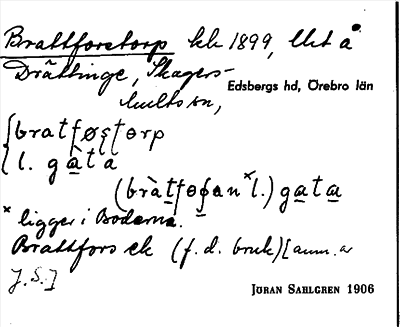 Brattforstorp kk 1899, Uet å
Drättinge, Skagers-
hults sn,
Edsbergs hd, Örebro län
{bratføştorp
l. gàta
(bràtfoꞗan ˣl.) gata
ˣ ligger i Bodarna.
Brattfors ek (f. d. bruk) [anm. av
J. S.]
JÖRAN SAHLGREN 1906